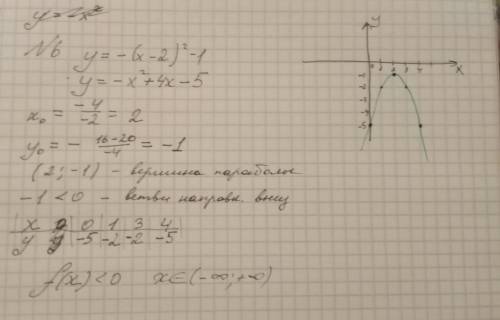 y = -x²
N6 y = -(x-2)² - 1
y = -x² + 4x - 5
x₀ = -4/-2 = 2
y₀ = - 16-20/-4 = -1
(2; -1) - вершина параболы
-1 < 0 - ветви направл. вниз
x 0 1 3 4
y -5 -2 -2 -5
f(x) < 0 x ∈ (-∞; +∞)
y
x